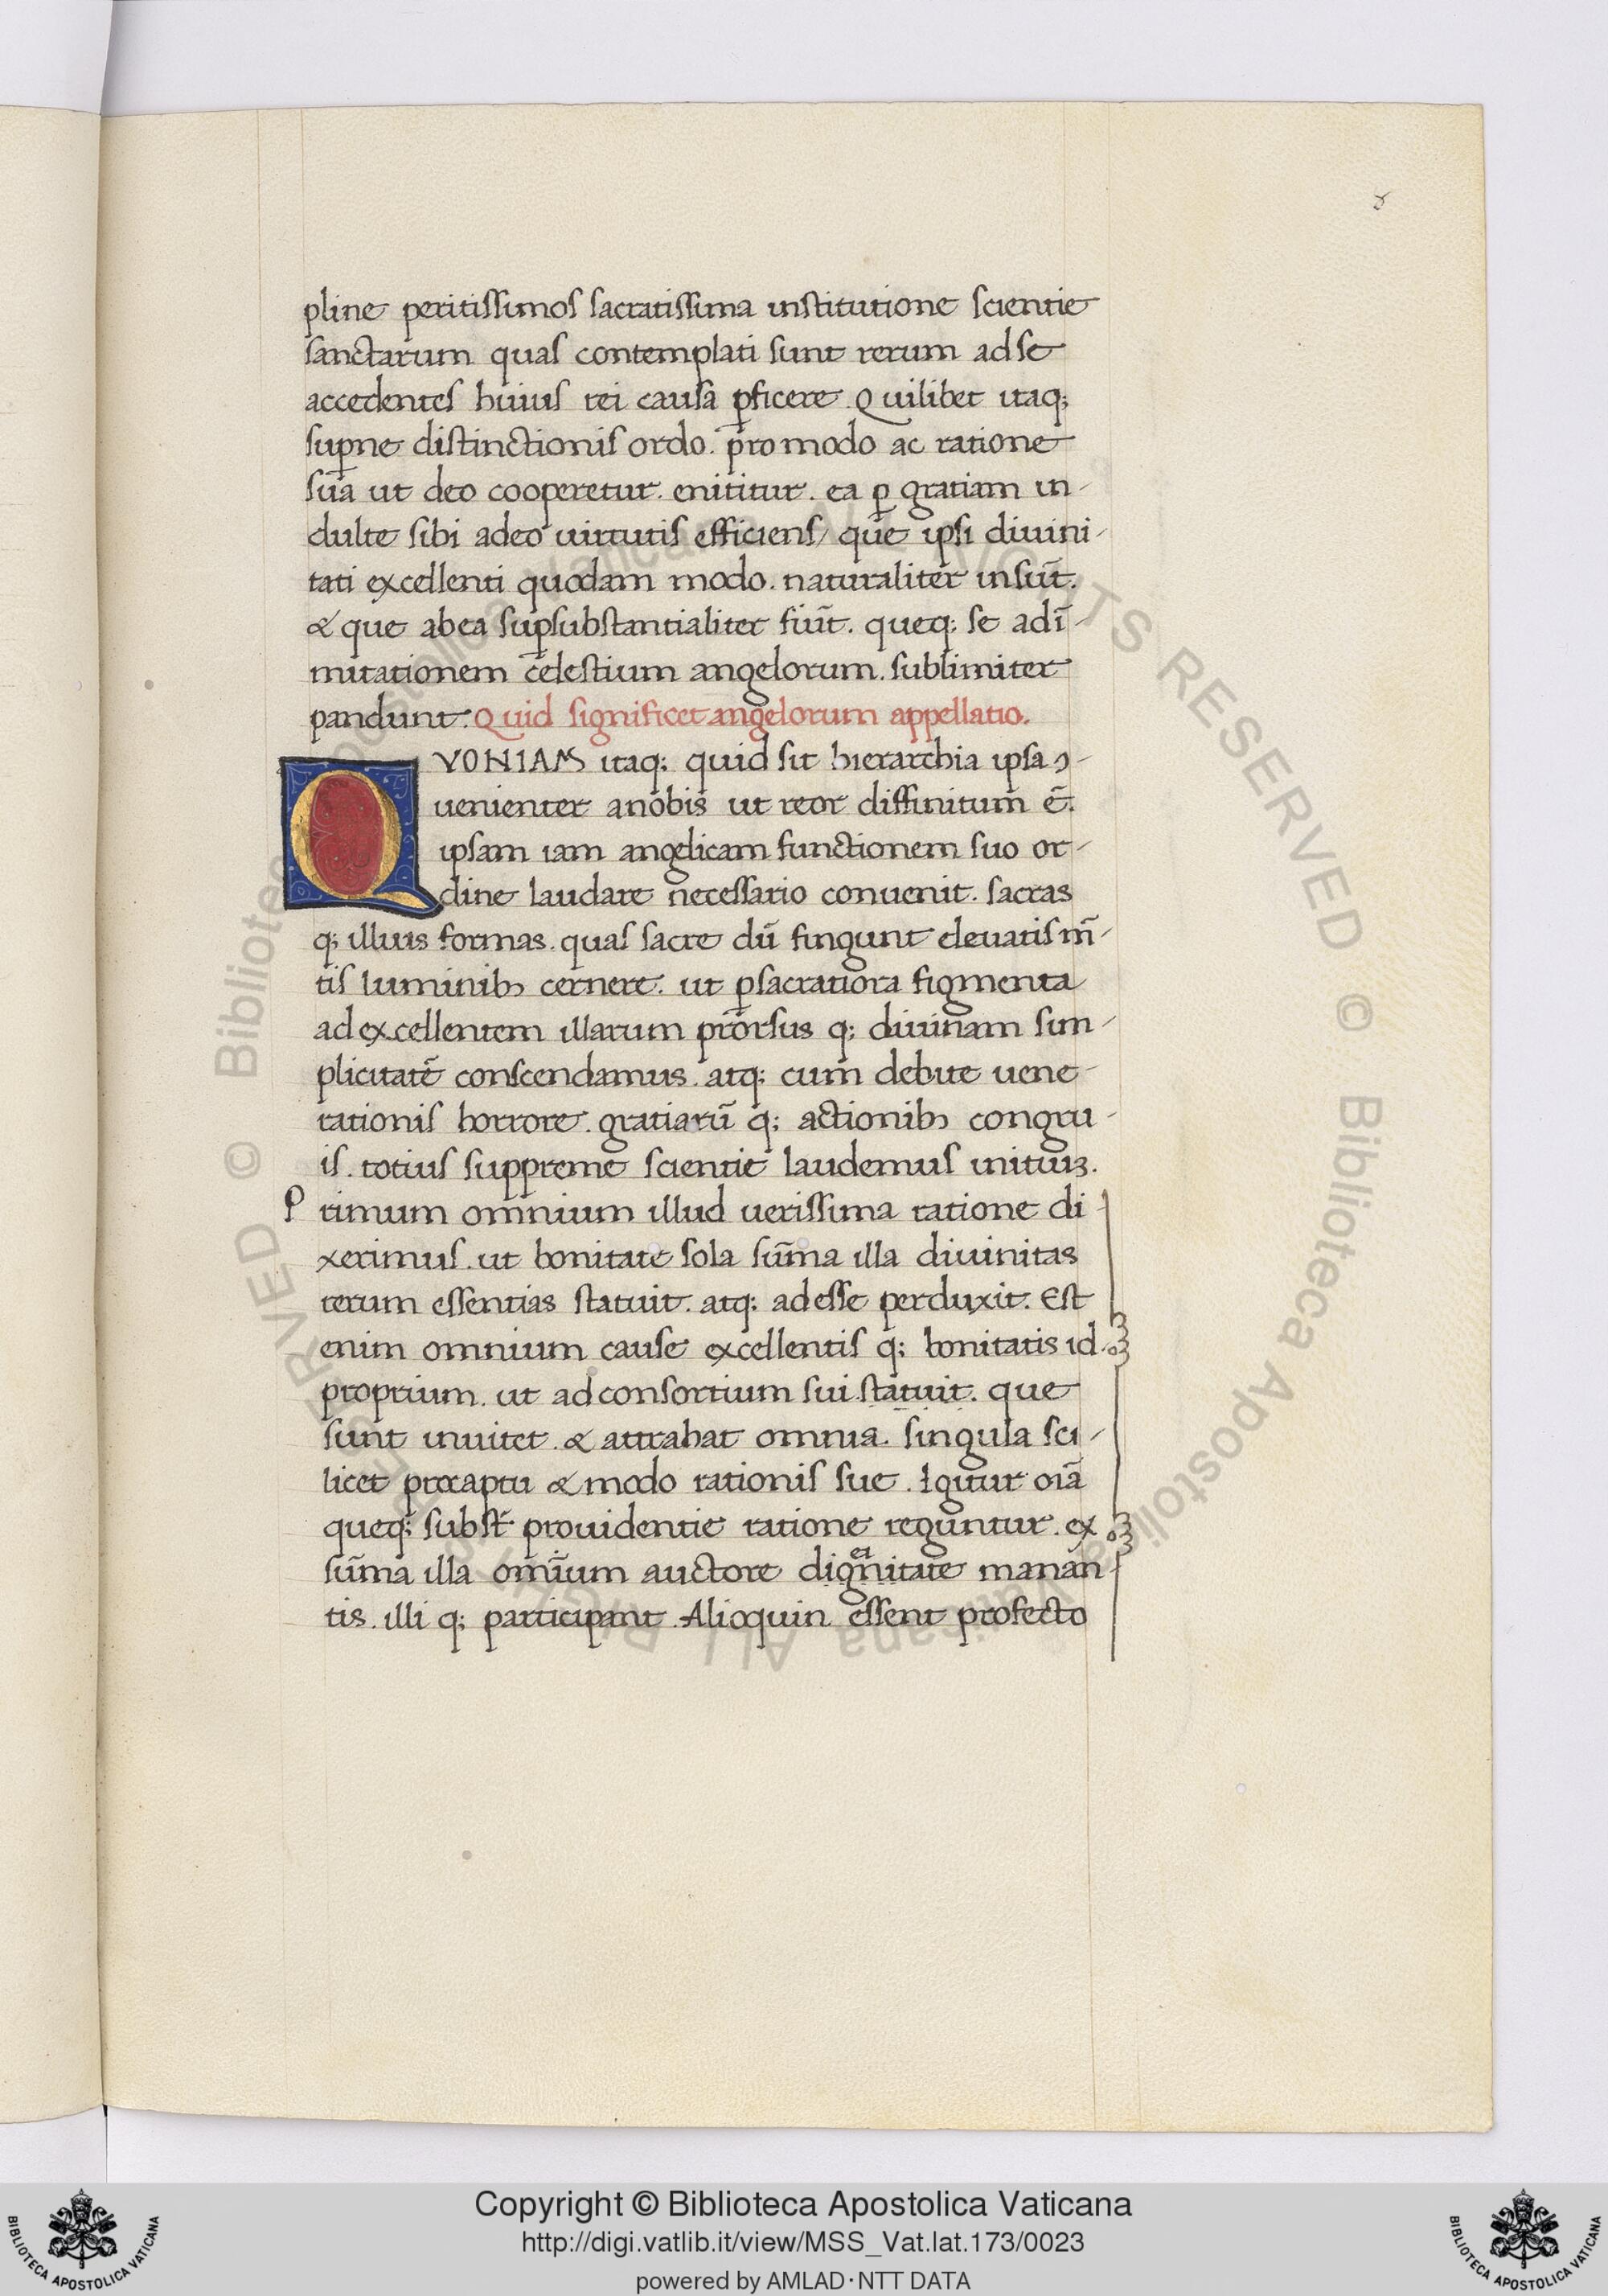 8
pline peritissimos sacratissima institutione scientie
sanctarum quas contemplati sunt rerum ad se
accedentes huius rei causa ꝑficere. Quilibet itaq;
suꝑne distinctionis ordo. pro modo ac ratione
sua ut deo cooperetur. enititur. ea ꝑ gratiam in-
dulte sibi adeo uirtutis efficiens/ que ipsi diuini-
tati excellenti quodam modo. naturaliter insūt.
& que ab ea suꝑsubstantialiter fiūt. queq; se ad ī-
mitationem celestium angelorum. sublimiter
pandunt. Quid significet angelorum appellatio.
QVONIAM itaq; quid sit hierarchia ipsa ꝯ-
uenienter a nobis ut reor diffinitum ē.
ipsam iam angelicam functionem suo or-
dine laudare necessario conuenit. sacras
q; illius formas. quas sacre dū fingunt eleuatis m̄-
tis luminibꝫ cernere. ut ꝑ sacratiora figmenta
ad excellentem illarum prorsus q; diuinam sim-
plicitatē conscendamus. atq; cum debite uene-
rationis horrore. gratiarū q; actionibꝫ congru-
is. totius suppreme scientie laudemus initiuꝫ.
Primum omnium illud uerissima ratione di-
xerimus. ut bonitate sola sūma illa diuinitas
rerum essentias statuit. atq; ad esse perduxit. Est
enim omnium cause excellentis q; bonitatis id.
proprium. ut ad consortium sui statuit. que
sunt inuitet. & attrahat omnia. singula sci-
licet pro captu & modo rationis sue. Igitur oīa
queq; subst̄ prouidentie ratione reguntur. ex
sūma illa omīum auctore dignitate manan-
tis. illi q; participant. Alioquin essent profecto
Copyright © Biblioteca Apostolica Vaticana
http://digi.vatlib.it/view/MSS_Vat.lat.173/0023
powered by AMLAD·NTT DATA
BIBLIOTECA APOSTOLICA VATICANA
BIBLIOTECA APOSTOLICA VATICANA